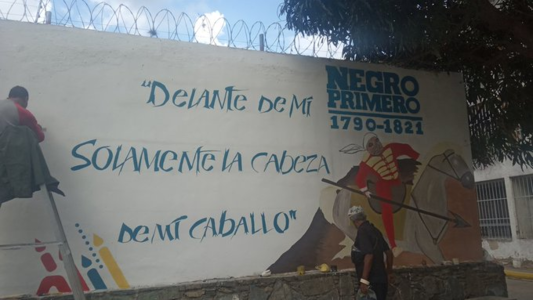 "DELANTE DE MI
SOLAMENTE LA CABEZA
DE MI CABALLO"
NEGRO
PRIMERO
1790-1821